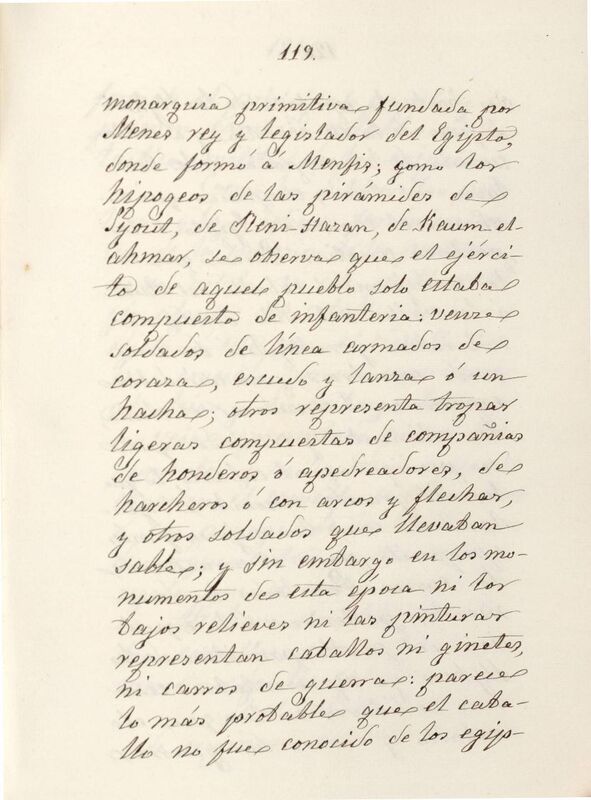 119.
monarquia primitiva fundada por
Menes rey y legislador del Egipto,
donde formó á Menfis; como los
hipogeos de las pirámides de
Syout, de Beni-Hazan, de Kaum el-
ahmar, se observa que el ejérci-
to de aquel pueblo solo estaba
compuesto de infanteria: vense
soldados de línea armados de
coraza, escudo y lanza ó un
hacha; otros representa tropas
ligeras compuestas de compañias
de honderos ó apedreadores, de
harcheros ó con arcos y flechas,
y otros soldados que llevaban
sable; y sin embargo en los mo-
numentos de esta época ni los
bajos relieves ni las pinturas
representan caballos ni ginetes,
ni carros de guerra: parece
lo más probable que el caba-
llo no fue conocido de los egip-